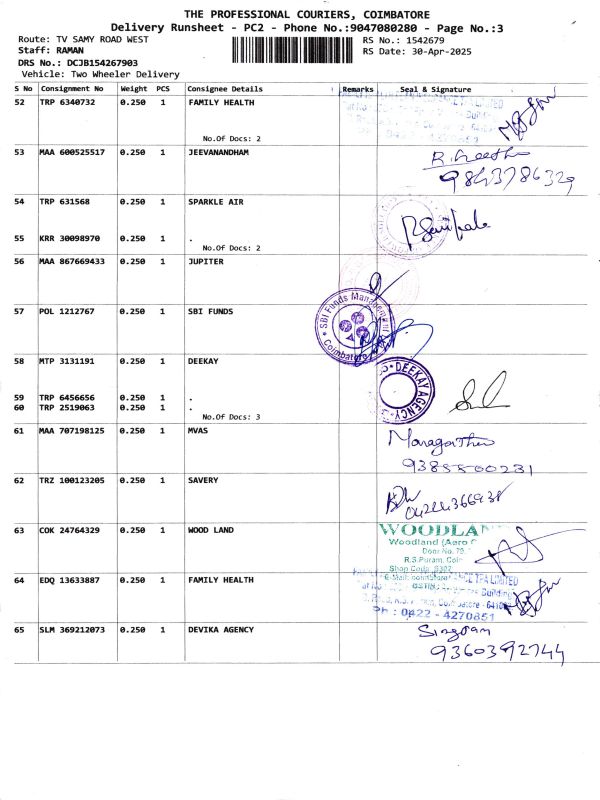 THE PROFESSIONAL COURIERS, COIMBATORE
Delivery Runsheet - PC2 - Phone No.:9047080280 - Page No.:3
Route: TV SAMY ROAD WEST
RS No.: 1542679
Staff: RAMAN
RS Date: 30-Apr-2025
DRS No.: DCJB154267903
Vehicle: Two Wheeler Delivery
S No Consignment No Weight PCS Consignee Details Remarks Seal & Signature
52 TRP 6340732 0.250 1 FAMILY HEALTH
No.Of Docs: 2
53 MAA 600525517 0.250 1 JEEVANANDHAM
54 TRP 631568 0.250 1 SPARKLE AIR
55 KRR 30098970 0.250 1 .
No.Of Docs: 2
56 MAA 867669433 0.250 1 JUPITER
57 POL 1212767 0.250 1 SBI FUNDS
SBI Funds Management
Coimbatore
58 MTP 3131191 0.250 1 DEEKAY
DEEKAY AGENCY
59 TRP 6456656 0.250 1 .
60 TRP 2519063 0.250 1 .
No.Of Docs: 3
61 MAA 707198125 0.250 1 MVAS
62 TRZ 100123205 0.250 1 SAVERY
63 COK 24764329 0.250 1 WOOD LAND
WOODLA
Woodland (Aero
Door No. 79,
R.S.Puram, Coim
Shop Code
64 EDQ 13633887 0.250 1 FAMILY HEALTH
TPA LIMITED
Building
Ph : 0422 - 4270851
65 SLM 369212073 0.250 1 DEVIKA AGENCY
9360392744